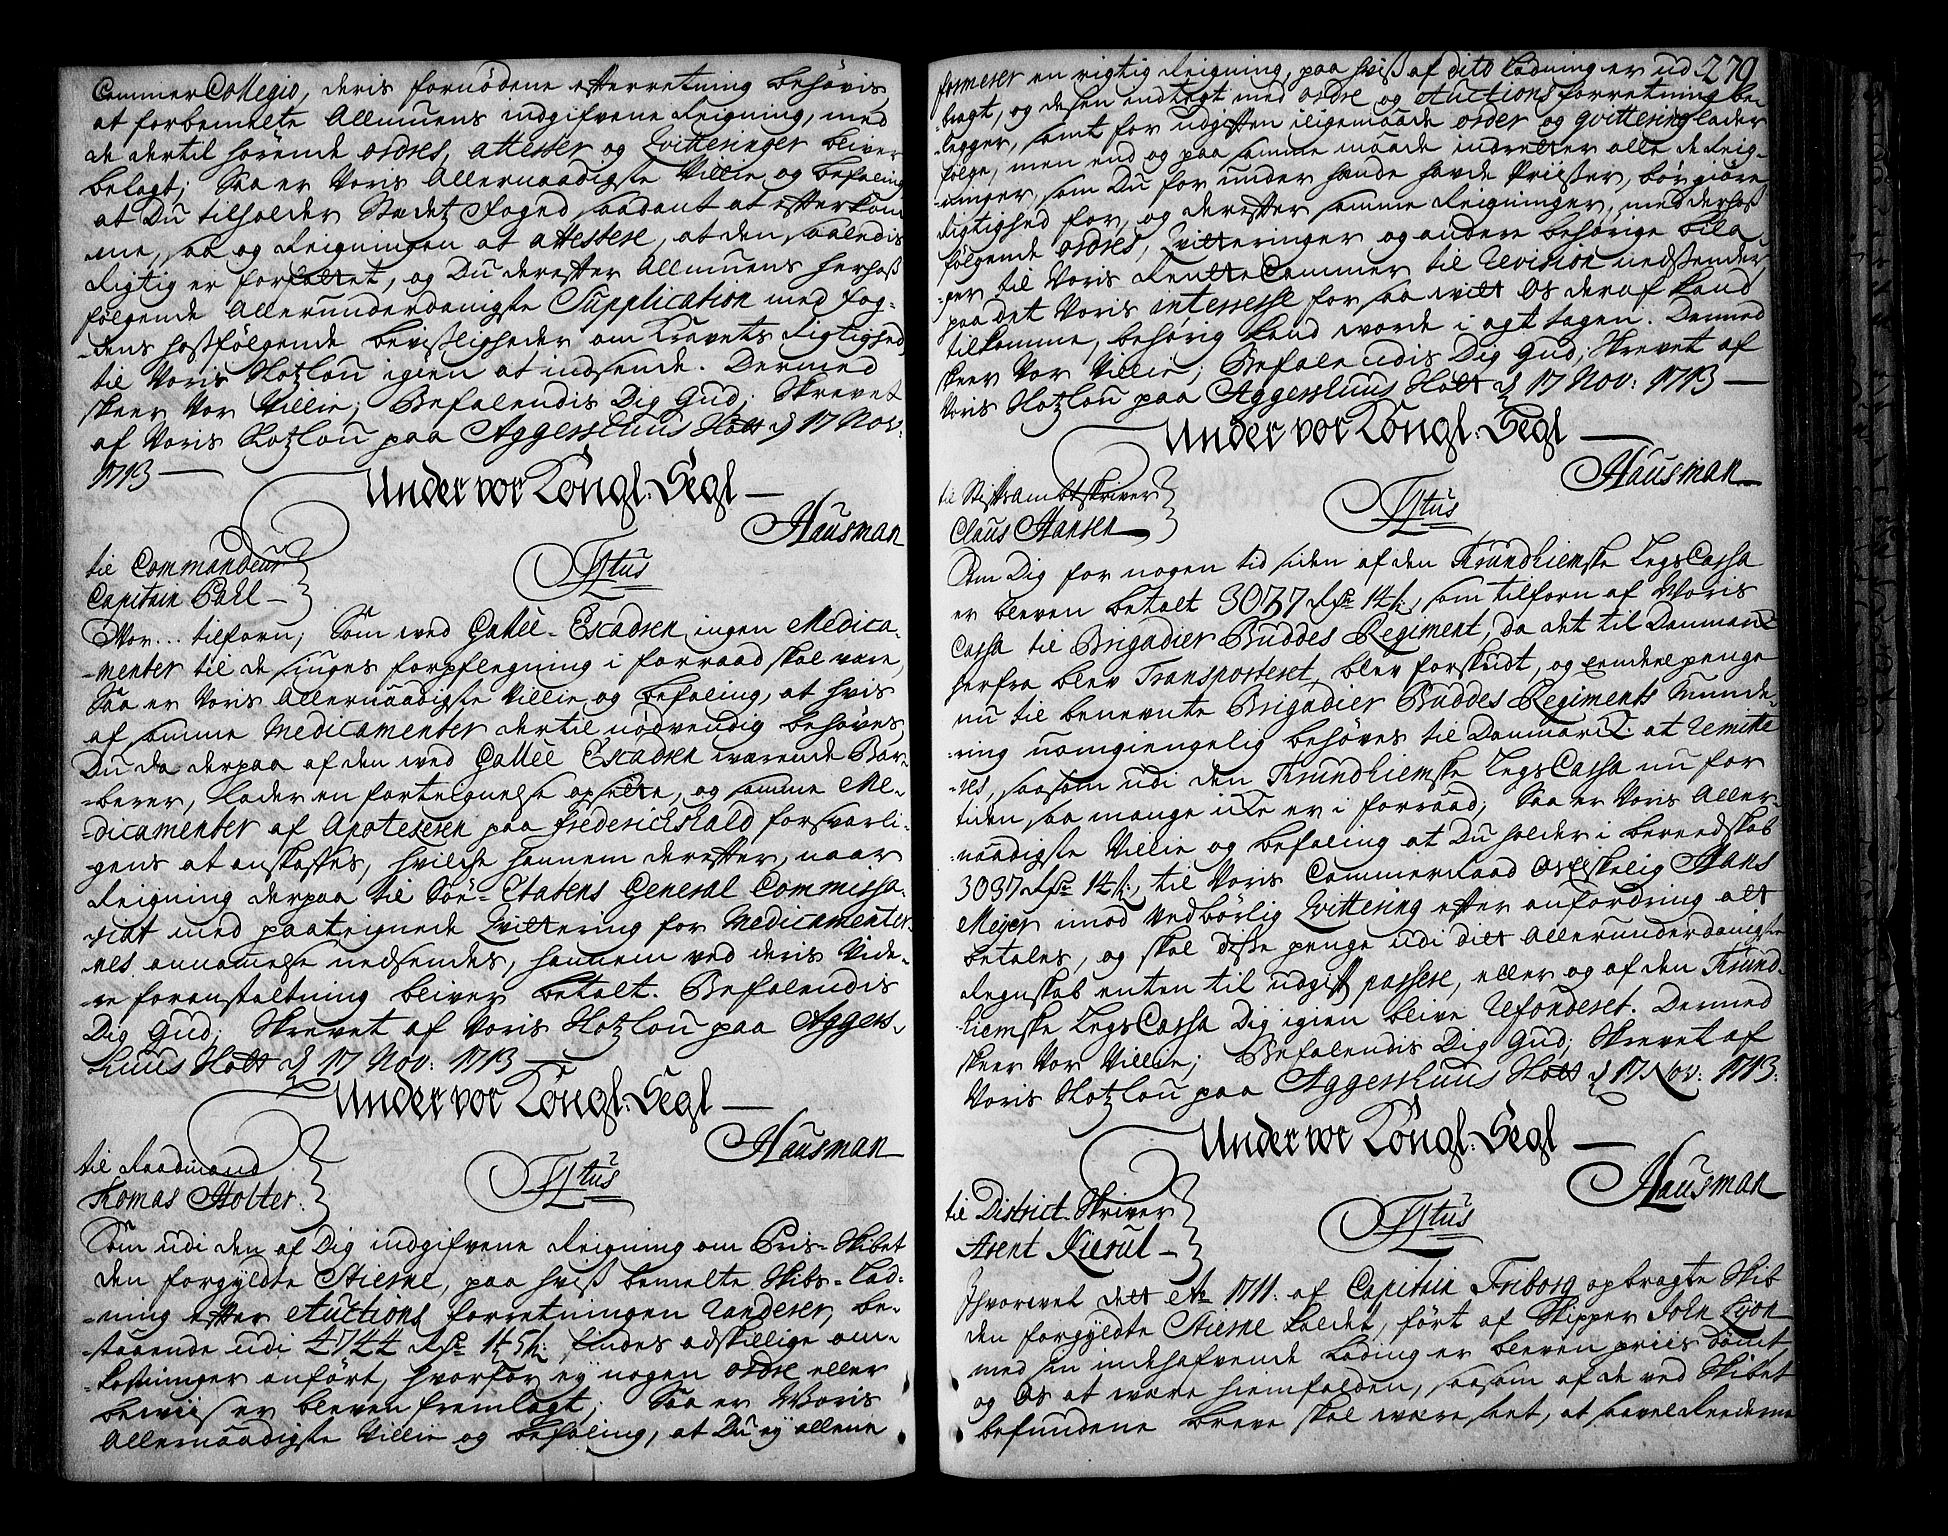 Cammer Collegio, deris fornødene efterretning behøvis,
at forbemelte Allmuens indgifvene Reigning, med
de dertil hørende ordres, attester og Qvitteringer bliver
belagt; Saa er Voris Allernaadigste Villie og befaling
at Du tilholder Stædetz Foged saadant at efterkom-
me, saa og Reigningen at attestere, at den saaledis
Rigtig er forfattet, og Du derefter Allmuens herhoß
følgende Allerunderdanigste Supplication med sag-
dens hoßfølgende bevißligheder om Kravets Rigtighed
til Voris Slotzlou igien at indsende. Dermed
skeer Vor Villie; Befalendis Dig Gud; Skrevet
af Voris Slotzlou paa Aggershuus Slott d 17 Nov:
1713
Under vor Kongl: Segl
Hausman
til Commandeur
Capitain Pall
Tituš
Vor... tilforn, Som ved Gallée-Escadren ingen Medica-
menter til de siuges forpflegning i forraad skal være,
Saa er Voris Allernaadigste Villie og befaling, at hvis
af samme Medicamenter dertil nødvendig behøves,
Du da derpaa af den ved Gallée Escadren værende Bar-
berer, Lader en fortegnelse opsette, og samme Me-
dicamenter af Apotekeren paa Friderichshald forsvarli-
gens at anskaffes, hvilche hannem derefter, naar
Reigning derpaa til Søe-Etatens General Commissa-
riat med paateignede Qvittering for Medicamenter-
nes annamelse nedsendes, hannem ved deris Vide-
re foranstaltning bliver betalt. Befalendis
Dig Gud; Skrevet af Voris Slotzlou paa Aggers-
huus Slott d 17 Nov: 1713
Under vor Kongl: Segl
Hausman
til Raadmand
Thomas Holter.
Titus
Som udi den af Dig indgifvene Reigning om Pris-Skibet
den forgyldte Stierne, paa hviß bemelte Skibs-Lad-
ning efter Auctions forretningen Randerer, be-
staaende udi 4744 Rdr 1 ort 5 s: findes adskillige om-
kostninger anført, hvorfor ey nogen ordre eller
beviis er bleven fremlagt; Saa er Voris
Allernaadigste Villie og befaling, at Du ey allene
279
formerer en rigtig Reigning, paa hviß af dito ladning er ud-
bragt, og desen indtegt med ordre og Auctions forretning be-
legger, samt for udgiften iligemaade order og qvittering lader
følge, men end og paa samme maade indretter alle de Reig-
ninger, som Du for under hænde havde Priißer, bør giøre
Rigtighed for, og derefter samme Reigninger, med derhoß
følgende ordres, Qvitteringer og andere behørige bila-
ger til Voris Rentte Cammer til Revision nedsender,
paa det Voris interesse for saa vit Os deraf kand
tilkomme, behørig kand worde i agt tagen. Dermed
skeer Vor Villie; Befalendis Dig Gud; Skrevet af
Voris Slotzlou paa Aggershuus Slott d 17 Nov: 1713
Under vor Kongl: Segl
Hausman
til Stiftsambtskriver
Claus Hansen
Titus
Som Dig for nogen tid siden af den Trundhiemske LegsCassa
er bleven betalt 3037 Rdr 14 s, som tilforn af Woris
Cassa til Brigadier Buddes Regiment, da det til Danmarck
herfra blev Transporteret, blev forskudt, og sendene penge
nu til benevnte Brigadier Buddes Regiments Munde-
ring uomgiengelig behøves til Danmarck at Remitte-
res, saasom udi den Trundhiemske LegsCassa nu for
tiden saa mange icke er i forraad; Saa er Voris Aller-
naadigste Villie og befaling at Du holder i bereedskab
3037 Rdr 14 s:, til Voris Commerceraad Os Elskelig Hans
Meyer imod Vedbørlig Qvittering efter anfordring at
betales, og skal diße penge udi ditt Allerunderdanigste
Regnskab enten til udgift passere, eller og af den Trund-
hiemske LegsCassa Dig igien blive Refonderet. Dermed
skeer Vor Villie; Befalendis Dig Gud; Skrevet af
Voris Slotzlou paa Aggershuus Slott d 17 Nov: 1713:
Under vor Kongl: Segl
Hausman
til District Skriver
Arent
Titus
Hvorvel dett Ao 1711. af Capitain Friborg opbragte Skib
den forgyldte Stierne kaldet, ført af Skipper John Lyon
med sin indehafvende Lading er bleven priis dømt,
og Os at være hiemfalden, saasom af de ved Skibet
befundene breve skal være seet, at saavel Reederne